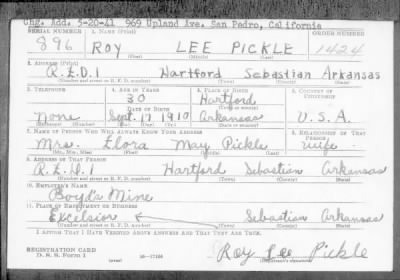 Chg. Add. 5-20-41 969 Upland Ave. San Pedro, California
SERIAL NUMBER 1. NAME (Print) ORDER NUMBER
896 ROY LEE PICKLE 1424
2. ADDRESS (Print)
R.F.D. 1 Hartford Sebastian Arkansas
(Number and street or R. F. D. number) (Town) (County) (State)
3. TELEPHONE 4. AGE IN YEARS 5. PLACE OF BIRTH 6. COUNTRY OF CITIZENSHIP
30 Hartford
DATE OF BIRTH
None Sept. 17 1910 Arkansas U.S.A.
7. NAME OF PERSON WHO WILL ALWAYS KNOW YOUR ADDRESS 8. RELATIONSHIP OF THAT PERSON
Mrs. Flora May Pickle wife
(Mr., Mrs., Miss) (First) (Middle) (Last)
9. ADDRESS OF THAT PERSON
R.F.D. 1 Hartford Sebastian Arkansas
(Number and street or R. F. D. number) (Town) (County) (State)
10. EMPLOYER'S NAME
Boyd's Mine
11. PLACE OF EMPLOYMENT OR BUSINESS
Excelsior Sebastian Arkansas
(Number and street or R. F. D. number) (Town) (County) (State)
I AFFIRM THAT I HAVE VERIFIED ABOVE ANSWERS AND THAT THEY ARE TRUE.
REGISTRATION CARD
D. S. S. Form 1 (over) 16-17105 Roy Lee Pickle
(Registrant's signature)